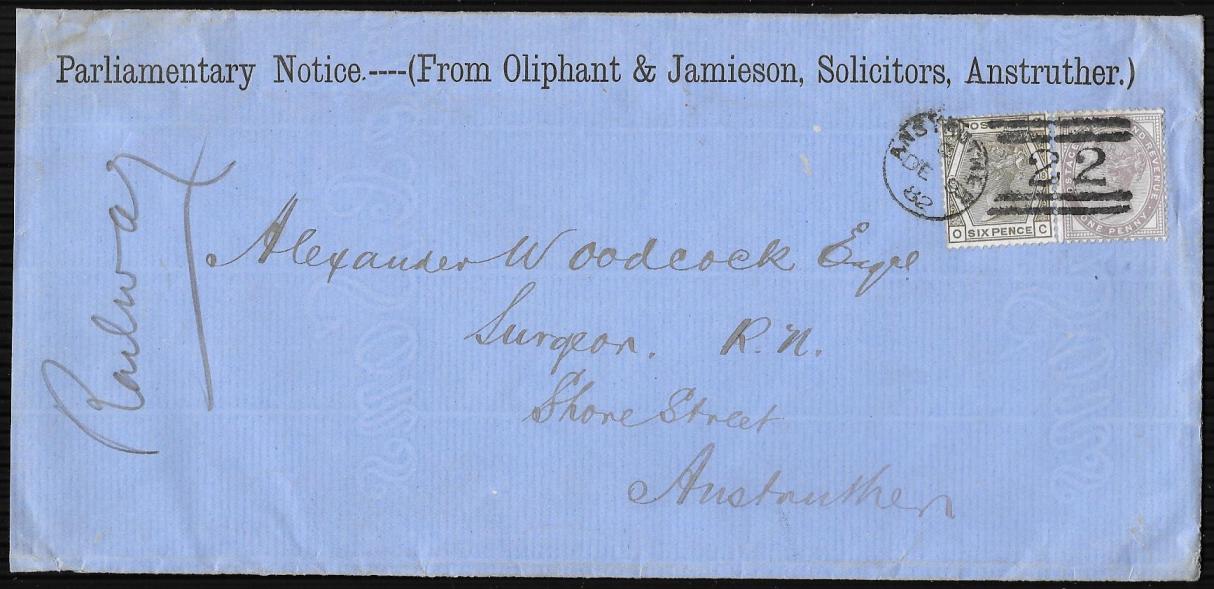 Parliamentary Notice.----(From Oliphant & Jamieson, Solicitors, Anstruther.)
ANSTRUTHER
DE
82
22
O S
SIX PENCE
O C
POSTAGE AND REVENUE
ONE PENNY
Railway
Alexander Woodcock Esqre
Surgeon. R.N.
Shore Street
Anstruther